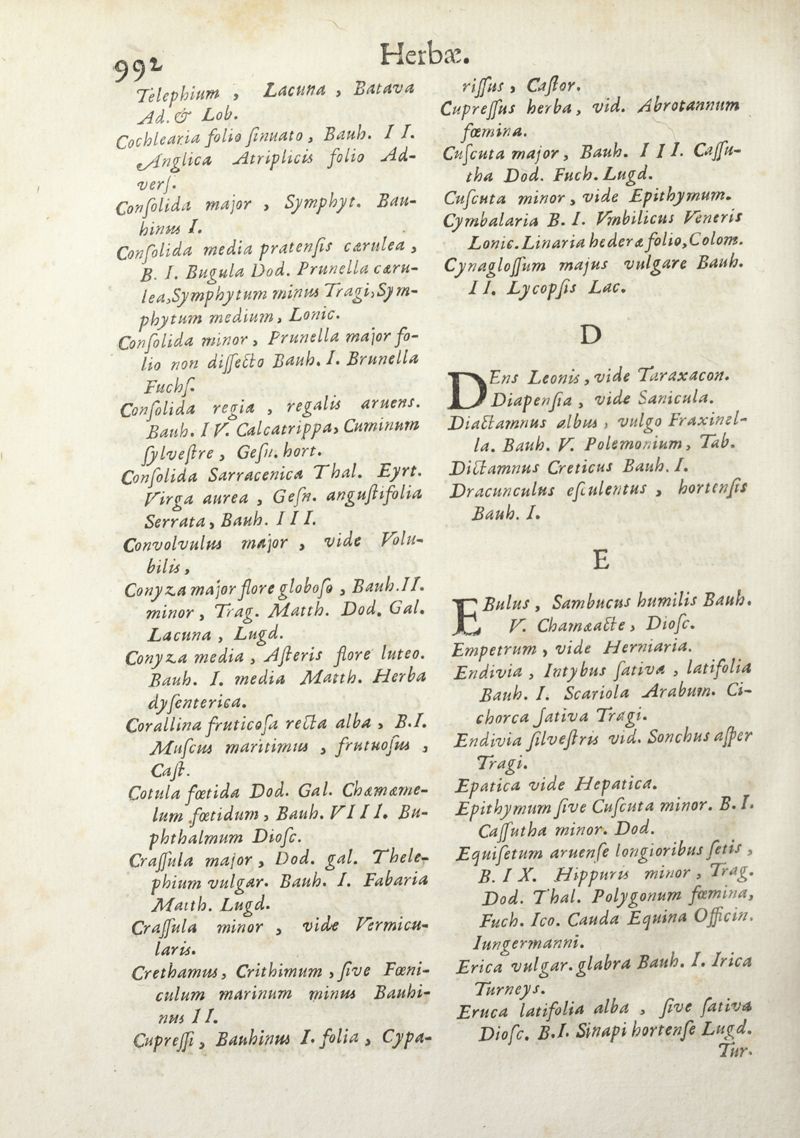 992
Herbæ.
Telephium , Lacuna , Batava
Ad. & Lob.
Cochlearia folio ſinuato , Bauh. I I.
Anglica Atriplicis folio Ad-
verſ.
Conſolida major , Symphyt. Bau-
hinus I.
Conſolida media pratenſis cærulea ,
B. I. Bugula Dod. Prunella cæru-
lea,Symphytum minus Tragi,Sym-
phytum medium, Lonic.
Conſolida minor , Prunella major fo-
lio non diſſecto Bauh. I. Brunella
Fuchſ.
Conſolida regia , regalis aruens.
Bauh. I V. Calcatrippa, Cuminum
ſylveſtre , Geſn. hort.
Conſolida Sarracenica Thal. Eyrt.
Virga aurea , Geſn. anguſtifolia
Serrata, Bauh. I I I.
Convolvulus major , vide Volu-
bilis,
Conyza major flore globoſo , Bauh. I I.
minor , Trag. Matth. Dod. Gal.
Lacuna , Lugd.
Conyza media , Aſteris flore luteo.
Bauh. I. media Matth. Herba
dyſenterica.
Corallina fruticoſa recta alba , B.I.
Muſcus maritimus , frutuoſus ,
Caſt.
Cotula fœtida Dod. Gal. Chamæme-
lum fœtidum , Bauh. V I I I. Bu-
phthalmum Dioſc.
Craſſula major , Dod. gal. Thele-
phium vulgar. Bauh. I. Fabaria
Matth. Lugd.
Craſſula minor , vide Vermicu-
laris.
Crethamus, Crithimum , ſive Fœni-
culum marinum minus Bauhi-
nus I I.
Cupreſſi , Bauhinus I. folia , Cypa-
riſſus , Caſtor.
Cupreſſus herba, vid. Abrotannum
fœmina.
Cuſcuta major , Bauh. I I I. Caſſu-
tha Dod. Fuch. Lugd.
Cuſcuta minor , vide Epithymum.
Cymbalaria B. I. Vmbilicus Veneris
Lonic. Linaria hederæ folio, Colom.
Cynagloſſum majus vulgare Bauh.
I I. Lycopſis Lac.
D
DEns Leonis , vide Taraxacon.
Diapenſia , vide Sanicula.
Diactamnus albus , vulgo Fraxinel-
la. Bauh. V. Polemonium, Tab.
Dictamnus Creticus Bauh. I.
Dracunculus eſculentus , hortenſis
Bauh. I.
E
EBulus , Sambucus humilis Bauh.
V. Chamæacte , Dioſc.
Empetrum , vide Herniaria.
Endivia , Intybus ſativa , latifolia
Bauh. I. Scariola Arabum. Ci-
chorca ſativa Tragi.
Endivia ſilveſtris vid. Sonchus aſper
Tragi.
Epatica vide Hepatica.
Epithymum ſive Cuſcuta minor. B. I.
Caſſutha minor. Dod.
Equiſetum aruenſe longioribus ſetis ,
B. I X. Hippuris minor , Trag.
Dod. Thal. Polygonum fœmina,
Fuch. Ico. Cauda Equina Officin.
Iungermanni.
Erica vulgar. glabra Bauh. I. Irica
Turneys.
Eruca latifolia alba , ſive ſativa
Dioſc. B.I. Sinapi hortenſe Lugd.
Tur-